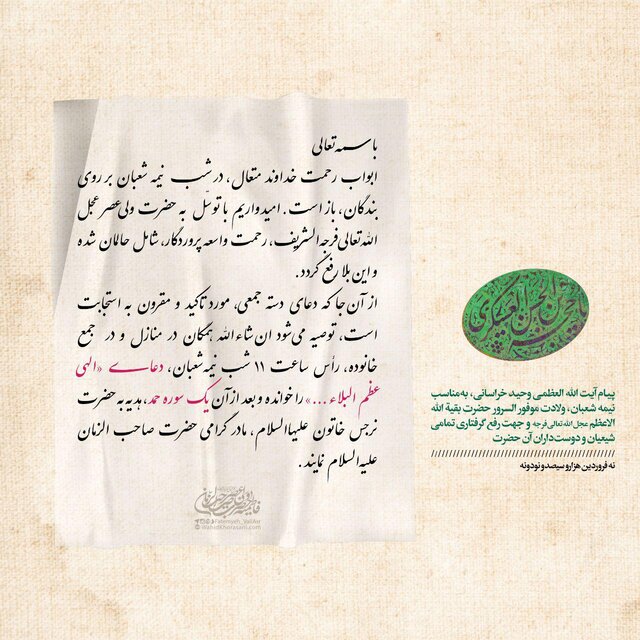 باسمه تعالی
ابواب رحمت خداوند متعال، در شب نیمه شعبان بر روی
بندگان، باز است. امیدواریم با توسّل به حضرت ولی عصر عجل
الله تعالی فرجه الشریف، رحمت واسعه پروردگار، شامل حالمان شده
و این بلا رفع گردد.
از آن جا که دعای دسته جمعی، مورد تاکید و مقرون به استجابت
است، توصیه می‌شود ان شاء الله همگان در منازل و در جمع
خانوده، رأس ساعت ۱۱ شب نیمه شعبان، دعای «الهی
عظم البلاء ...» را خوانده و بعد از آن یک سوره حمد، هدیه به حضرت
نرجس خاتون علیها السلام، مادر گرامی حضرت صاحب الزمان
علیه السلام نمایند.
Fatemyeh_ValiAsr
WahidKhorasani.com
پیام آیت الله العظمی وحید خراسانی، به‌مناسبت
نیمه شعبان، ولادت موفور السرور حضرت بقیة الله
الاعظم عجل الله تعالی فرجه و جهت رفع گرفتاری تمامی
شیعیان و دوست‌داران آن حضرت
نه فروردین هزار و سیصد و نود و نه